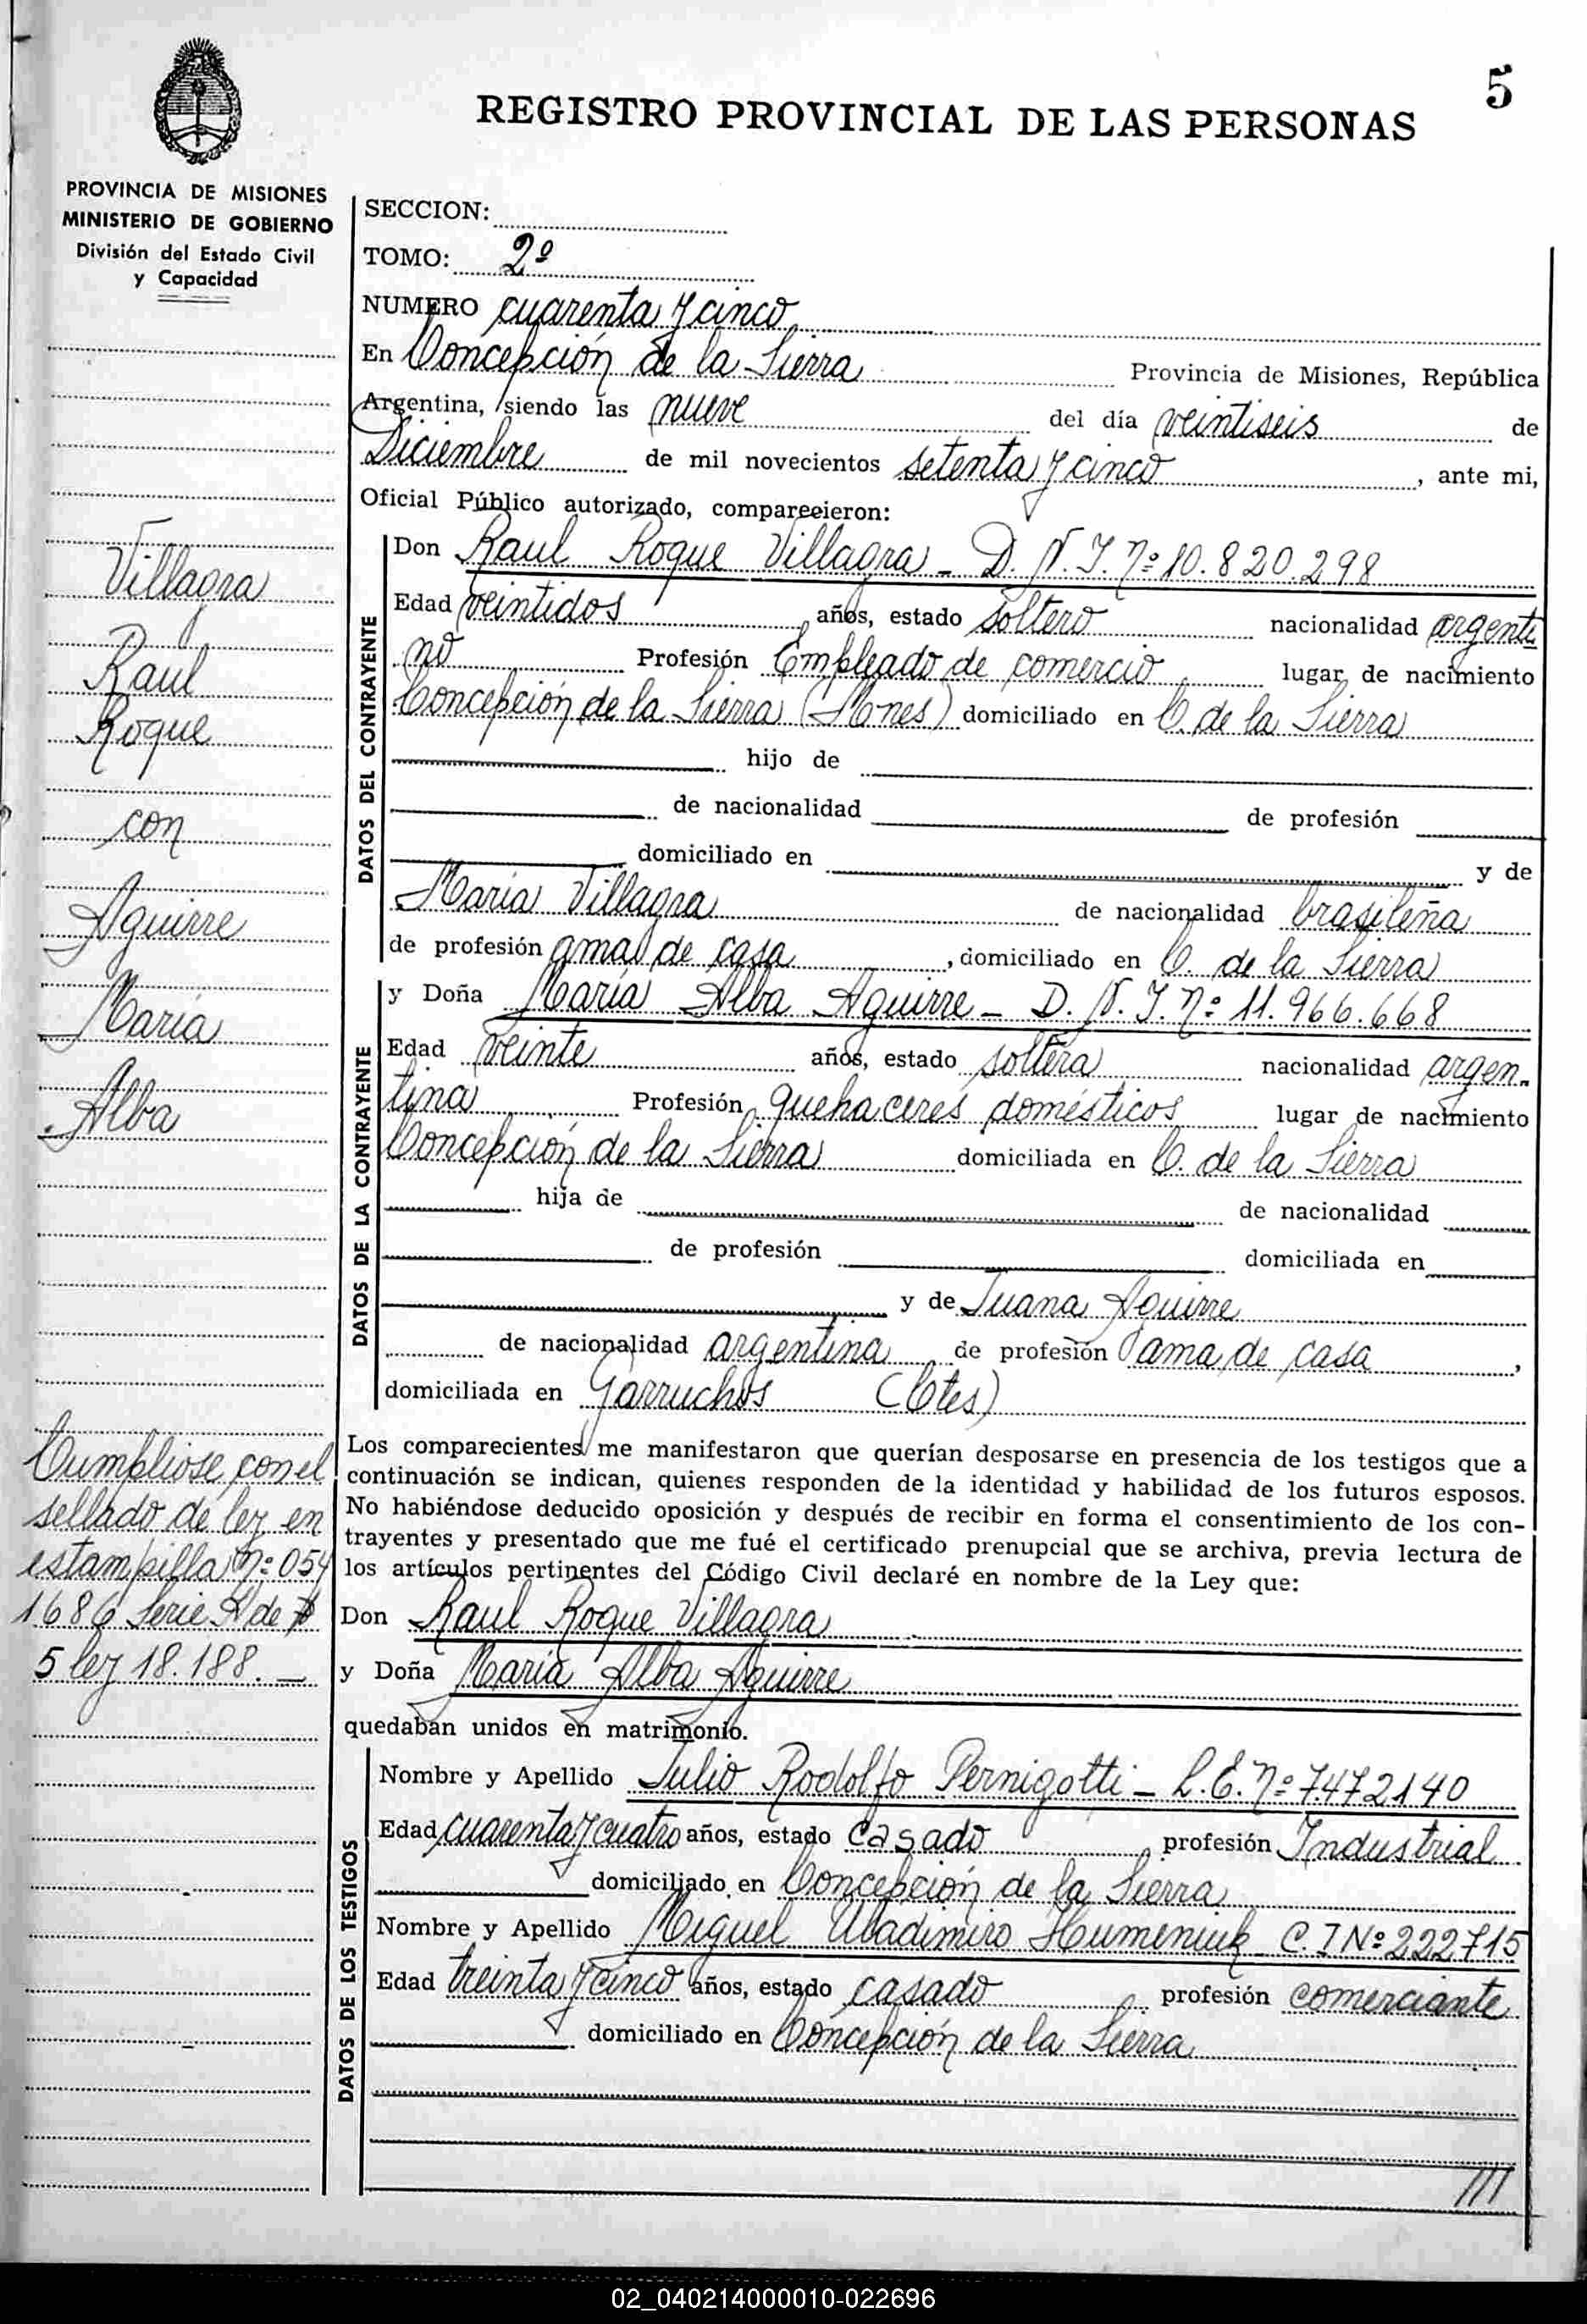 5
REGISTRO PROVINCIAL DE LAS PERSONAS
PROVINCIA DE MISIONES
MINISTERIO DE GOBIERNO
División del Estado Civil
y Capacidad
Villagra
Raul
Roque
con
Aguirre
María
Alba
Cumpliose con el
sellado de ley en
estampilla Nº 054
1686 Serie A de $
5 ley 18.188. —
SECCION:
TOMO: 2º
NUMERO cuarenta y cinco
En Concepción de la Sierra Provincia de Misiones, República
Argentina, siendo las nueve del día veintiseis de
Diciembre de mil novecientos setenta y cinco, ante mi,
Oficial Público autorizado, comparecieron:
DATOS DEL CONTRAYENTE
Don Raul Roque Villagra - D. N. I. Nº 10.820.298
Edad veintidos años, estado soltero nacionalidad argenti
no Profesión Empleado de comercio lugar de nacimiento
Concepción de la Sierra (Mnes) domiciliado en C. de la Sierra
hijo de
de nacionalidad de profesión
domiciliado en y de
María Villagra de nacionalidad brasileña
de profesión ama de casa, domiciliado en C. de la Sierra
DATOS DE LA CONTRAYENTE
y Doña María Alba Aguirre - D. N. I. Nº 11.966.668
Edad veinte años, estado soltera nacionalidad argen-
tina Profesión quehaceres domésticos lugar de nacimiento
Concepción de la Sierra domiciliada en C. de la Sierra
hija de de nacionalidad
de profesión domiciliada en
y de Juana Aguirre
de nacionalidad argentina de profesión ama de casa,
domiciliada en Garruchos (Ctes)
Los comparecientes me manifestaron que querían desposarse en presencia de los testigos que a
continuación se indican, quienes responden de la identidad y habilidad de los futuros esposos.
No habiéndose deducido oposición y después de recibir en forma el consentimiento de los con-
trayentes y presentado que me fué el certificado prenupcial que se archiva, previa lectura de
los artículos pertinentes del Código Civil declaré en nombre de la Ley que:
Don Raul Roque Villagra
y Doña María Alba Aguirre
quedaban unidos en matrimonio.
DATOS DE LOS TESTIGOS
Nombre y Apellido Julio Rodolfo Pernigotti - L.E. Nº 7.472140
Edad cuarenta y cuatro años, estado casado profesión Industrial
domiciliado en Concepción de la Sierra
Nombre y Apellido Miguel Uladimiro Humeniuk C. I Nº 222715
Edad treinta y cinco años, estado casado profesión comerciante
domiciliado en Concepción de la Sierra
///
02_040214000010-022696